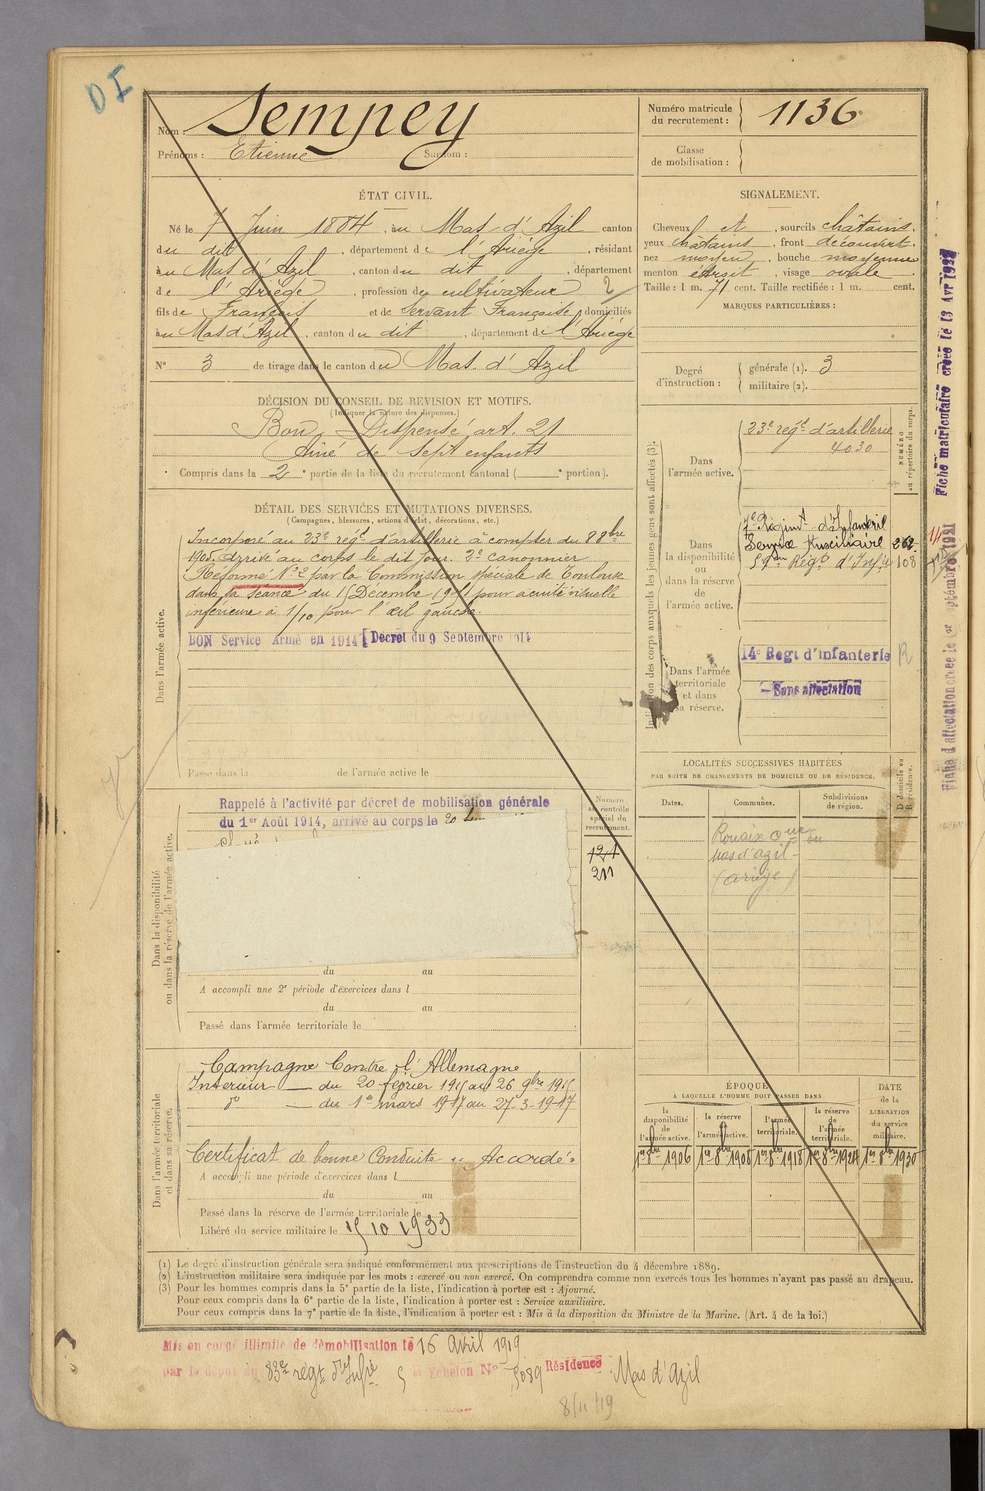 D I
Nom : Sempey
Prénoms : Etienne Surnom :
Numéro matricule du recrutement : 1136
Classe de mobilisation :
ÉTAT CIVIL.
Né le 7 Juin 1884, au Mas d'Azil canton
du dit, département de l'Ariège, résidant
au Mas d'Azil, canton du dit, département
de l'Ariège, profession de cultivateur 2
fils de François et de Servant Françoise, domiciliés
au Mas d'Azil, canton du dit, département de l'Ariège
N° 3 de tirage dans le canton du Mas d'Azil
SIGNALEMENT.
Cheveux et, sourcils châtains.
yeux châtains, front découvert.
nez moyen, bouche moyenne
menton étroit, visage ovale
Taille : 1 m. 71 cent. Taille rectifiée : 1 m. cent.
MARQUES PARTICULIÈRES :
Degré d'instruction : générale (1). 3
militaire (2).
DÉCISION DU CONSEIL DE REVISION ET MOTIFS.
(Indiquer la nature des dispenses.)
Bon Dispensé art. 21
Aîné de sept enfants
Compris dans la 2e partie de la liste du recrutement cantonal ( e portion).
DÉTAIL DES SERVICES ET MUTATIONS DIVERSES.
(Campagnes, blessures, actions d'éclat, décorations, etc.)
Dans l'armée active.
Incorporé au 23e regt d'artillerie à compter du 8 8bre
1905. Arrivé au corps le dit jour. 2e canonnier
Réformé N°2 par la Commission spéciale de Toulouse
dans la séance du 15 Décembre 1905 pour acuité visuelle
inférieure à 1/10 pour l'œil gauche.
BON Service Armé en 1914 Décret du 9 Septembre 1914
Passé dans la de l'armée active le
Indication des corps auxquels les jeunes gens sont affectés (3).
NUMÉRO au répertoire du corps.
Dans l'armée active.
23e regt d'artillerie
4030
Dans la disponibilité ou dans la réserve de l'armée active.
Régimt d'Infanterie
Service Auxiliaire 262
59me Regt d'Infie 108
Dans l'armée territoriale et dans sa réserve.
14e Regt d'infanterie
Sans affectation
R
Fiche matriculaire créée le 13 Avr 1927
Fiche d'affectation créée le 1er septembre 1921
LOCALITÉS SUCCESSIVES HABITÉES
PAR SUITE DE CHANGEMENTS DE DOMICILE OU DE RÉSIDENCE.
Dates. Communes. Subdivisions de région. D. domicile ou R. résidence.
mas d'azil
(ariège)
Dans la disponibilité ou dans la réserve de l'armée active.
Numéro au contrôle spécial du recrutement.
121
211
Rappelé à l'activité par décret de mobilisation générale
du 1er Août 1914, arrivé au corps le 20
du au
A accompli une 2e période d'exercices dans l
du au
Passé dans l'armée territoriale le
Dans l'armée territoriale et dans sa réserve.
Campagne Contre l'Allemagne
Intérieur — du 20 février 1915 au 26 9bre 1915
do — du 1er mars 1917 au 27-3-1917
Certificat de bonne Conduite "Accordé"
A accompli une période d'exercices dans l
du au
Passé dans la réserve de l'armée territoriale le
Libéré du service militaire le 15 10 1933
ÉPOQUE
À LAQUELLE L'HOMME DOIT PASSER DANS
DATE de la LIBÉRATION du service militaire.
la disponibilité de l'armée active. la réserve de l'armée active. l'armée territoriale. la réserve de l'armée territoriale.
1er 8bre 1906 1er 8bre 1908 1er 8bre 1918 1er 8bre 1924 1er 8bre 1930
(1) Le degré d'instruction générale sera indiqué conformément aux prescriptions de l'instruction du 4 décembre 1889.
(2) L'instruction militaire sera indiquée par les mots : exercé ou non exercé. On comprendra comme non exercés tous les hommes n'ayant pas passé au drapeau.
(3) Pour les hommes compris dans la 5e partie de la liste, l'indication à porter est : Ajourné.
Pour ceux compris dans la 6e partie de la liste, l'indication à porter est : Service auxiliaire.
Pour ceux compris dans la 7e partie de la liste, l'indication à porter est : Mis à la disposition du Ministre de la Marine. (Art. 4 de la loi.)
Mis en congé illimité de démobilisation le 16 Avril 1919
par le dépôt du 83e régt d'Infie 5 e échelon N° 5089 Résidence Mas d'Azil
8/11/19